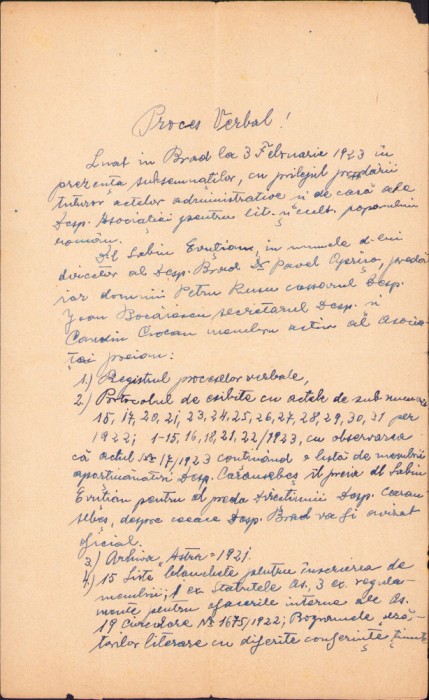 Proces Verbal!
Luat in Brad la 3 Februarie 1923 in
prezența subsemnaților, cu prilejul predării
tuturor actelor administrative și de casă ale
Desp. Asociației pentru lit. și cult. poporului
român.
Dl Sabin Evuțian, in numele d-lui
director al Desp. Brad Dr Pavel Oprișa, predă
iar domnii Petru Rusu casarul Desp.
Ioan secretarul Desp. și
Candin Ciocan membru activ al Asocia-
ței preiau:
1.) Registrul proceselor verbale,
2.) Protocolul de exibite cu actele de sub numerii
15, 17, 20, 21, 23, 24, 25, 26, 27, 28, 29, 30, 31 per
1922; 1-15, 16, 18, 21, 22/1923, cu observarea
că actul 17/1923 conținând o listă de membrii
aparținători Desp. Caransebeș îl preia dl Sabin
Evuțian pentru al preda Direcțiunii Desp. Caran
sebeș, despre ceeace Desp. Brad va fi avizat
oficial.
3.) Arhiva "Astra" - 1921.
4.) 15 Liste blanchete pentru înscrierea de
membrii; 1 ex. Statutele As., 3 ex. regula-
mente pentru afacerile interne ale As.
19 Circulare No 1675/1922;
literare cu diferite conferințe ținute